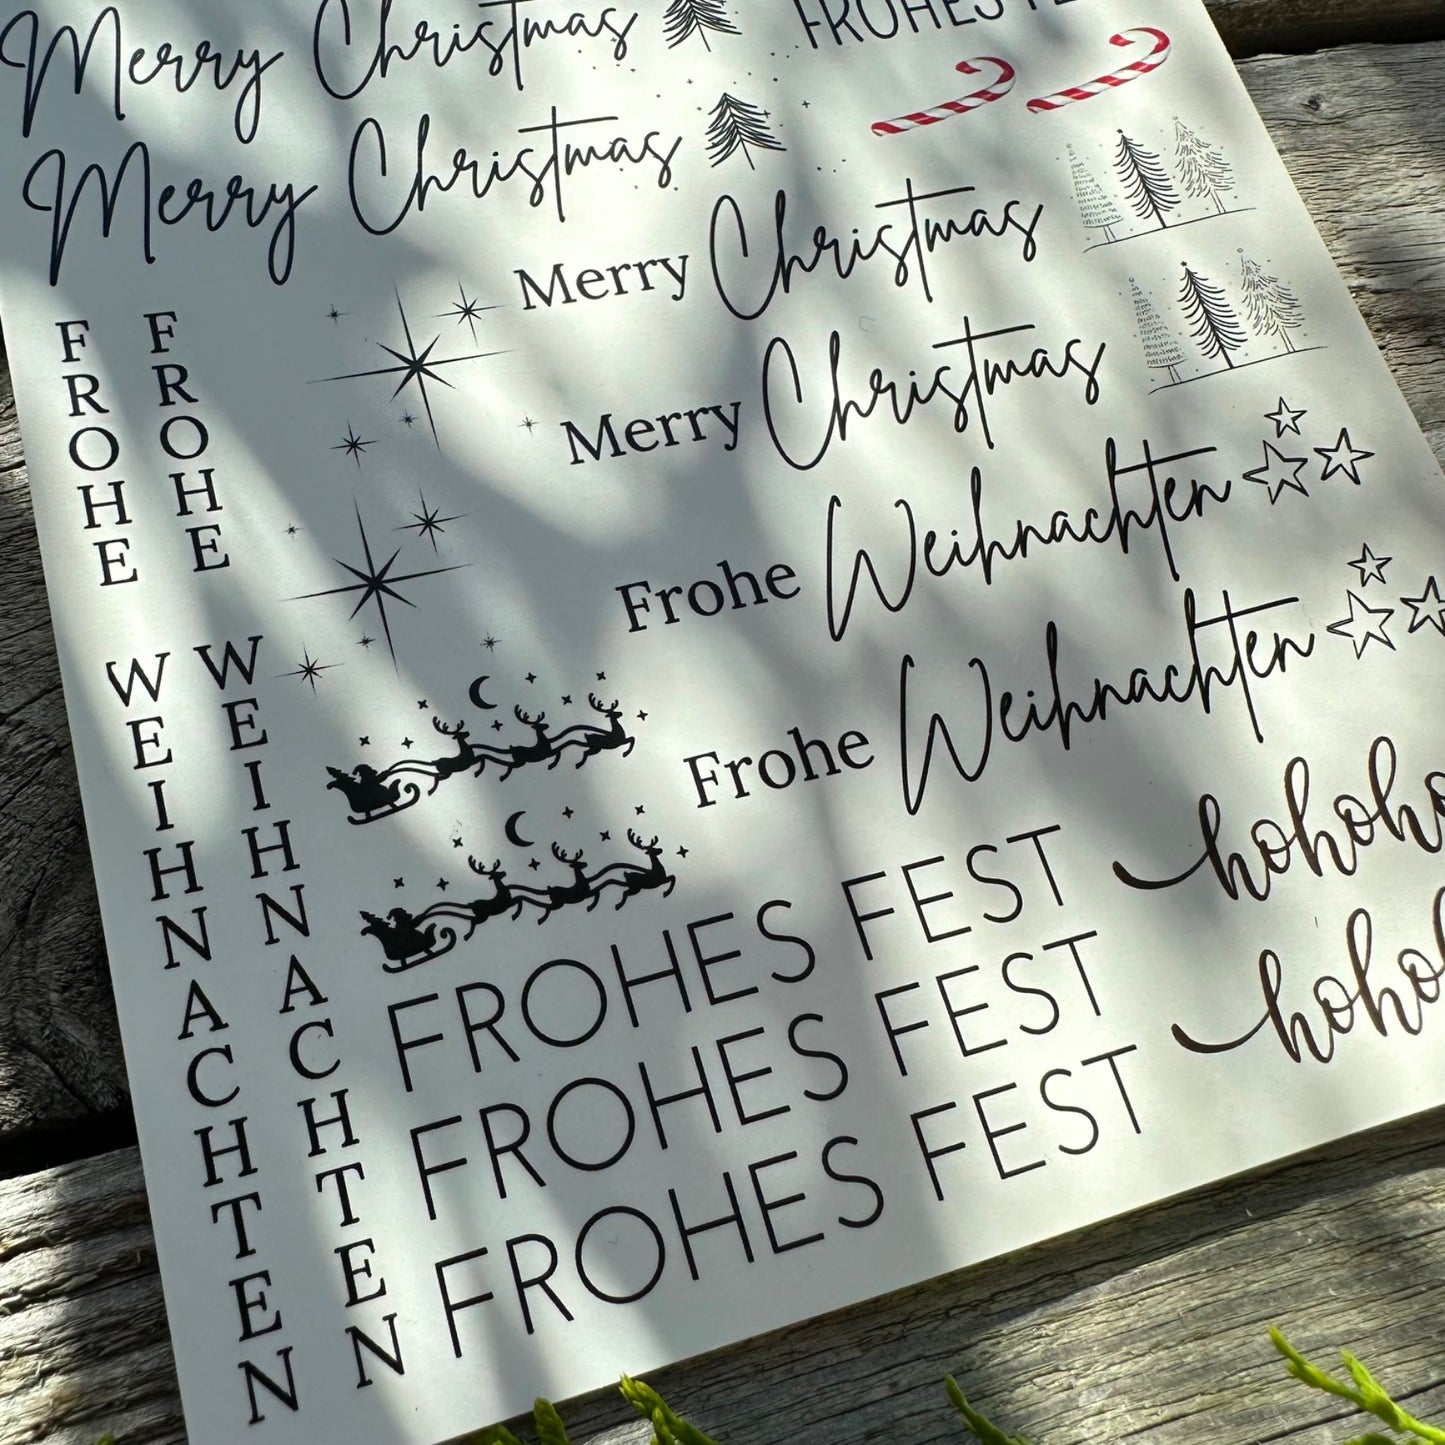 Merry Christmas
Merry Christmas
FROHES
Merry Christmas
Merry Christmas
Frohe Weihnachten
Frohe Weihnachten
FROHE WEIHNACHTEN
FROHE WEIHNACHTEN
hohoho
FROHES FEST
FROHES FEST
FROHES FEST